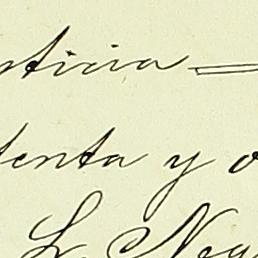 sticia =
tenta y o
L. Neg